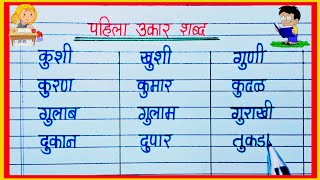 पहिला उकार शब्द
कुशी खुशी गुणी
कुरण कुमार कुदळ
गुलाब गुलाम गुराखी
दुकान दुपार तुकडा